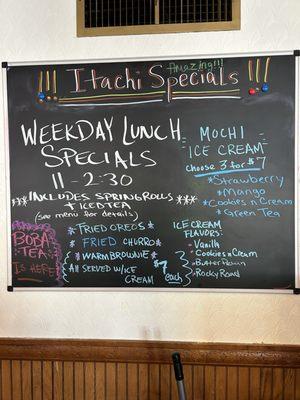 Amazing!!!
!!! Itachi Specials !!!
WEEKDAY LUNCH
SPECIALS
11-2:30
*** INCLUDES SPRING ROLLS ***
+ ICED TEA
(see menu for details)
MOCHI
ICE CREAM
choose 3 for $7
*Strawberry
*Mango
*Cookies n Cream
*Green Tea
BOBA
TEA
IS HERE!
* FRIED OREOS *
* FRIED CHURRO *
* WARM BROWNIE *
All SERVED W/ICE
CREAM
$7
each
ICE CREAM
FLAVORS:
- Vanilla
- Cookies n Cream
- Butter Pecan
- Rocky Road